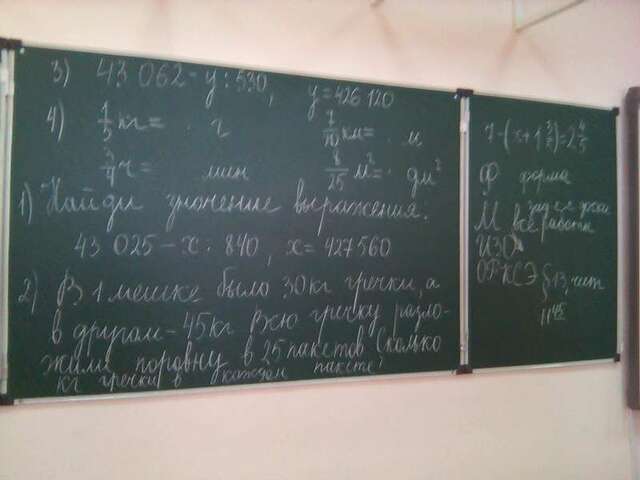 3) 43 062 - y : 530, y = 426 120
4) 1/5 кг = . г 7/10 км = . м
3/4 ч = мин 8/25 м² = . дм²
1) Найди значение выражения:
43 025 - x : 840, x = 427560
2) В 1 мешке было 30 кг гречки, а
в другом - 45 кг Всю гречку разло-
жили поровну в 25 пакетов Сколько
кг гречки в каждом пакете?
Ф форма
М все работы
ИЗО
ОРКСЭ § 13, чит
11 45